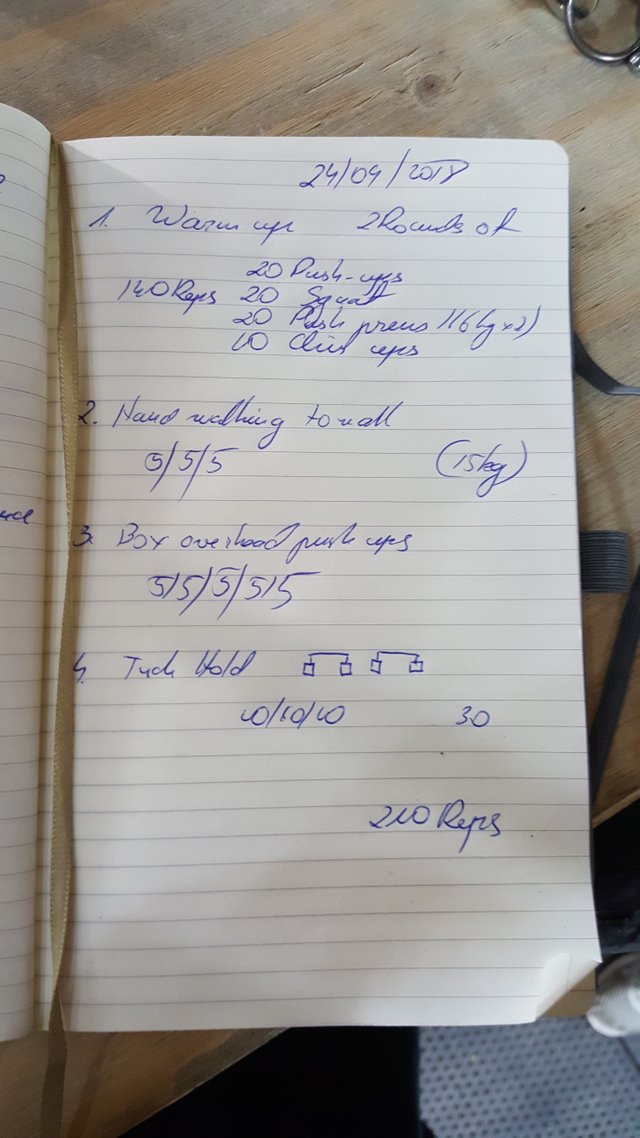 24/04/2018
1. Warm up 2 Rounds of
20 Push-ups
140 Reps 20 Squat
20 Push press (16kg x2)
10 Chin ups
2. Hand walking to wall
5/5/5 (15kg)
3. Box overhead push ups
5/5/5/5/5
4. Tuck Hold
10/10/10 30
210 Reps